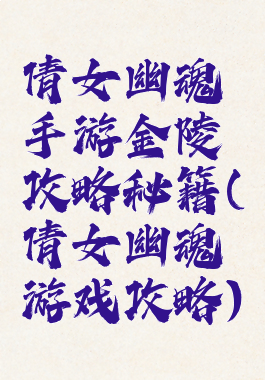 倩女幽魂
手游金陵
攻略秘籍(
倩女幽魂
游戏攻略)